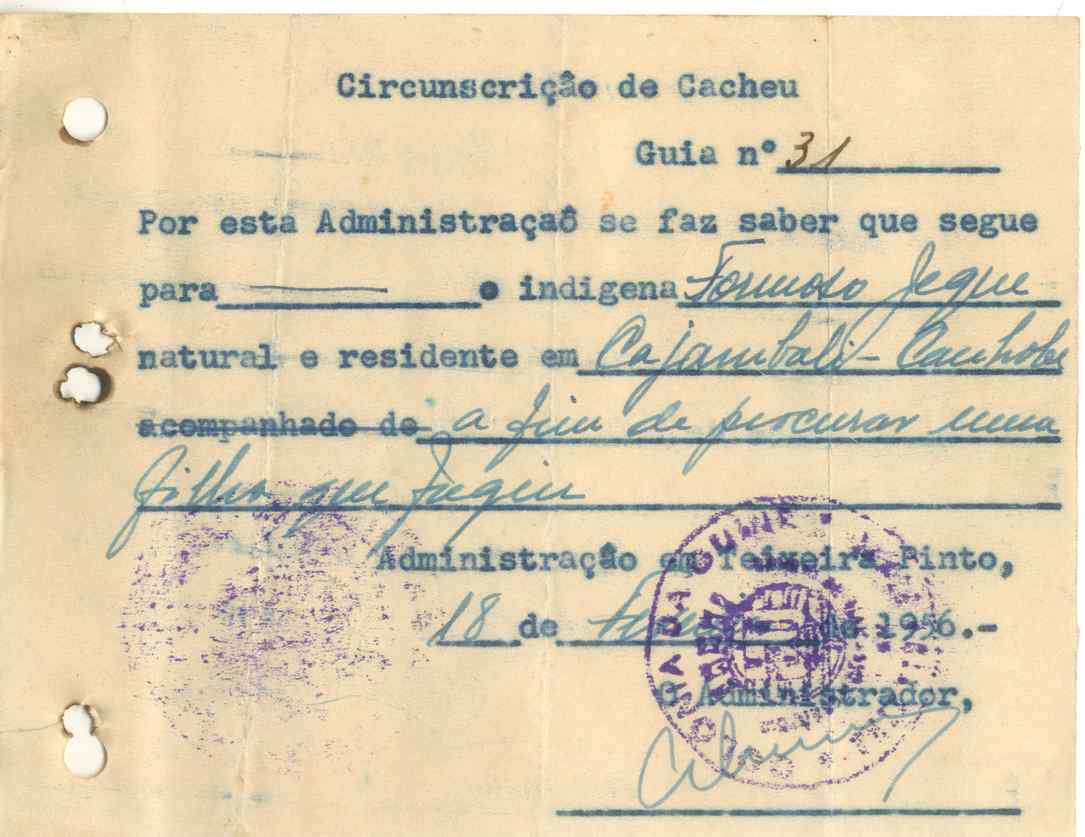 Circunscrição de Cacheu
Guia nº 31
Por esta Administraçaõ se faz saber que segue
para o indigena Formoso Jeque
natural e residente em Cajambali - Canhobe
acompanhado de a fim de procurar uma
filha que fugiu
Administração em Teixeira Pinto,
18 de de 1956.-
O Administrador,
DA GUINÉ